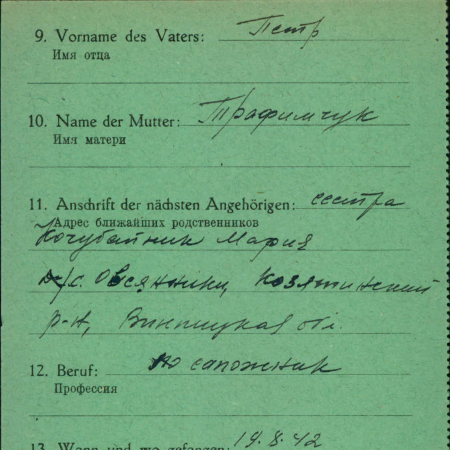 9. Vorname des Vaters: Петр
Имя отца
10. Name der Mutter: Трафимчук
Имя матери
11. Anschrift der nächsten Angehörigen: сестра
Адрес ближайших родственников
Кочубейник Мария
с. Овсянники, Козятинский
р-н, Винницкая обл.
12. Beruf: сапожник
Профессия
13. Wann und wo gefangen: 19.8.42